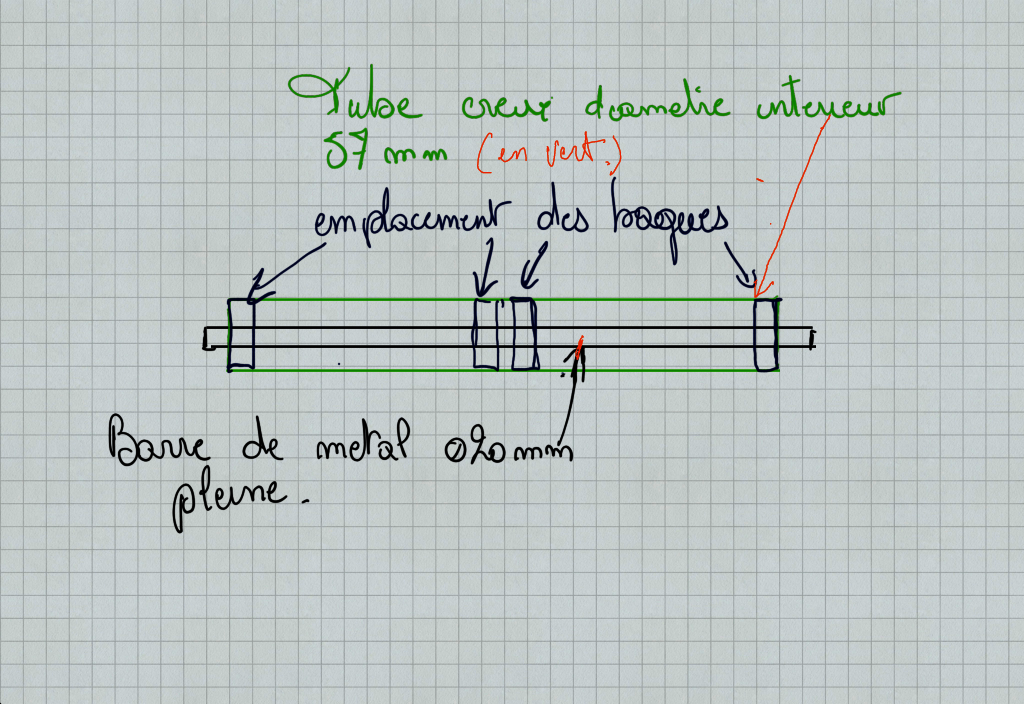 Tube creux diametre interieur
57 mm (en vert.)
emplacement des bagues
Barre de metal ø20mm
pleine.